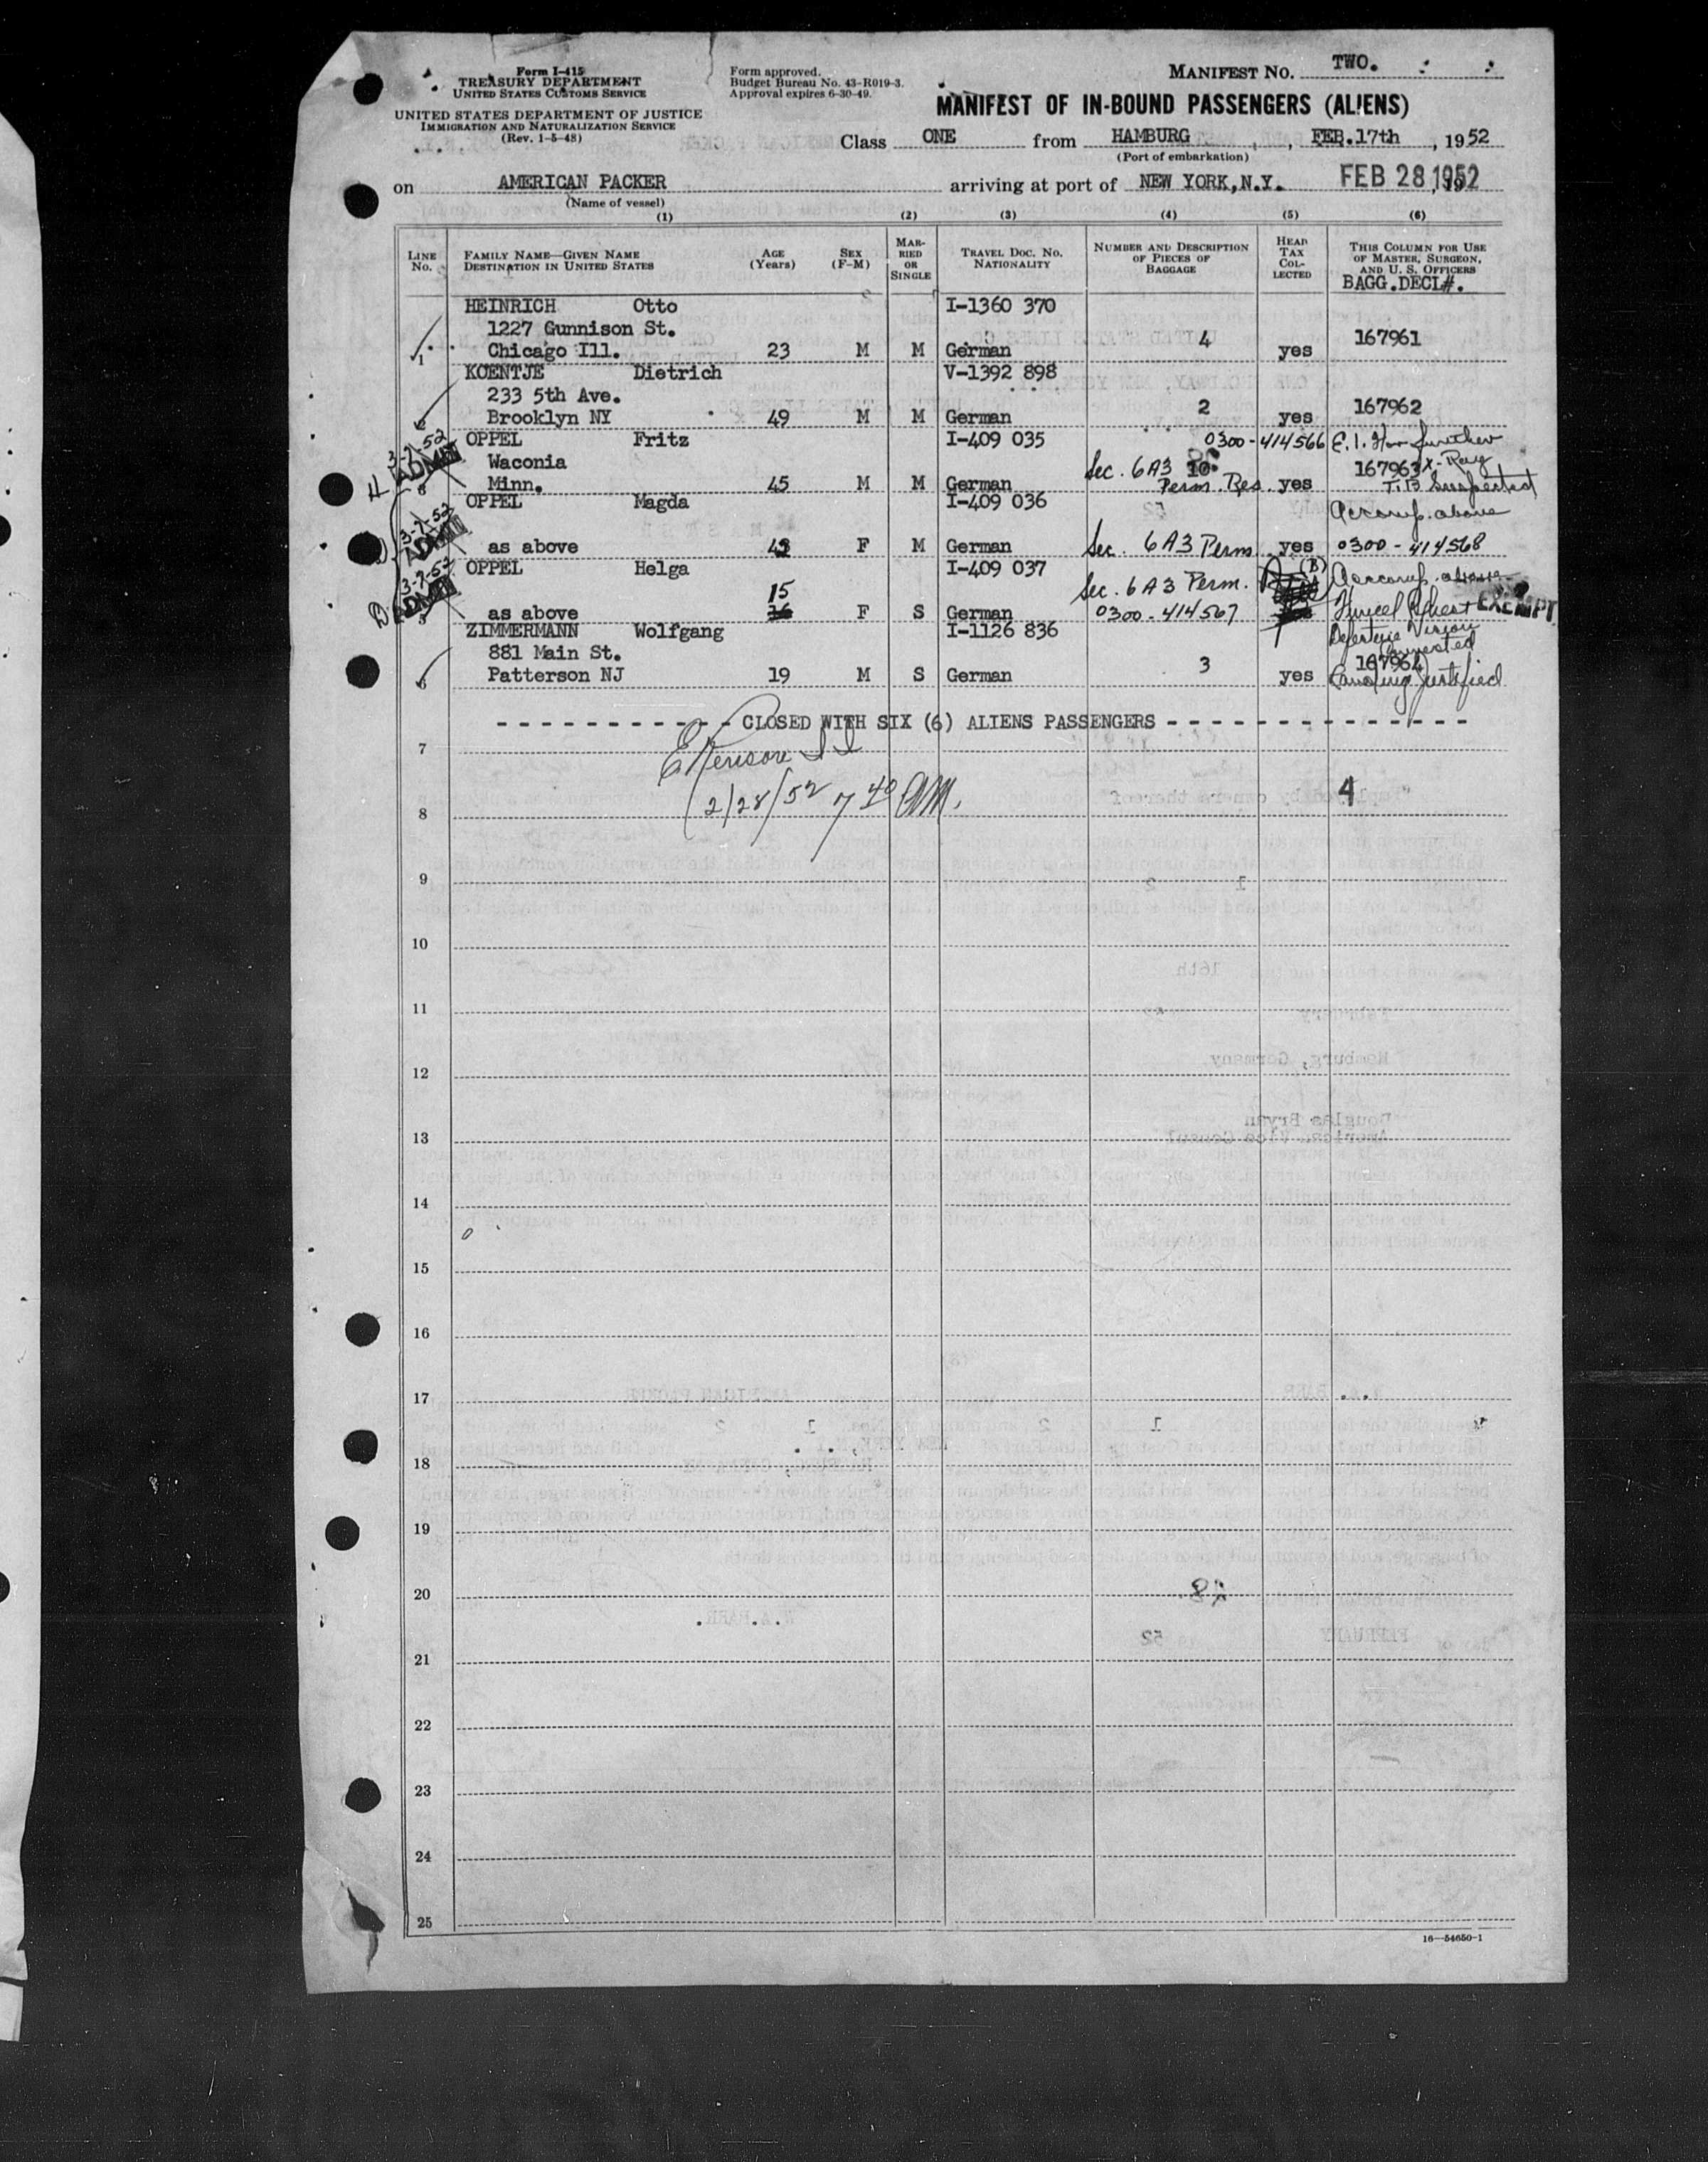 Form I-415
TREASURY DEPARTMENT
UNITED STATES CUSTOMS SERVICE
UNITED STATES DEPARTMENT OF JUSTICE
IMMIGRATION AND NATURALIZATION SERVICE
(Rev. 1-5-48)
Form approved.
Budget Bureau No. 43-R019-3.
Approval expires 6-30-49.
MANIFEST NO. TWO.
MANIFEST OF IN-BOUND PASSENGERS (ALIENS)
Class ONE from HAMBURG, FEB.17th, 1952
(Port of embarkation)
on AMERICAN PACKER arriving at port of NEW YORK,N.Y. FEB 28 1952
(Name of vessel)
(1) (2) (3) (4) (5) (6)
LINE No. FAMILY NAME—GIVEN NAME DESTINATION IN UNITED STATES AGE (Years) SEX (F-M) MARRIED OR SINGLE TRAVEL DOC. NO. NATIONALITY NUMBER AND DESCRIPTION OF PIECES OF BAGGAGE HEAD TAX COLLECTED THIS COLUMN FOR USE OF MASTER, SURGEON, AND U. S. OFFICERS
BAGG.DECL#.
HEINRICH Otto I-1360 370
1227 Gunnison St.
1 Chicago Ill. 23 M M German 4 yes 167961
KOENTJE Dietrich V-1392 898
233 5th Ave.
Brooklyn NY 49 M M German 2 yes 167962
3-7-52 OPPEL Fritz I-409 035 0300-414566 E.I. For further
ADMIT Waconia Sec. 6A3 10 167963 X-Ray
Minn. 45 M M German Perm. Res. yes T.B Suspected
3-7-52 OPPEL Magda I-409 036 Accomp. above
ADMIT as above 43 F M German Sec. 6A3 Perm yes 0300-414568
3-7-52 OPPEL Helga I-409 037 Sec. 6A3 Perm. (B) Accomp. above
ADMIT 15
5 as above 16 F S German 0300-414567 EXEMPT
ZIMMERMANN Wolfgang I-1126 836 Defective Vision
881 Main St. Corrected
6 Patterson NJ 19 M S German 3 yes 167964
Landing Justified
CLOSED WITH SIX (6) ALIENS PASSENGERS
7
2/28/52 7 40 AM.
4
8
9
10
11
12
13
14
15
16
17
18
19
20
21
22
23
24
25
16—54650-1